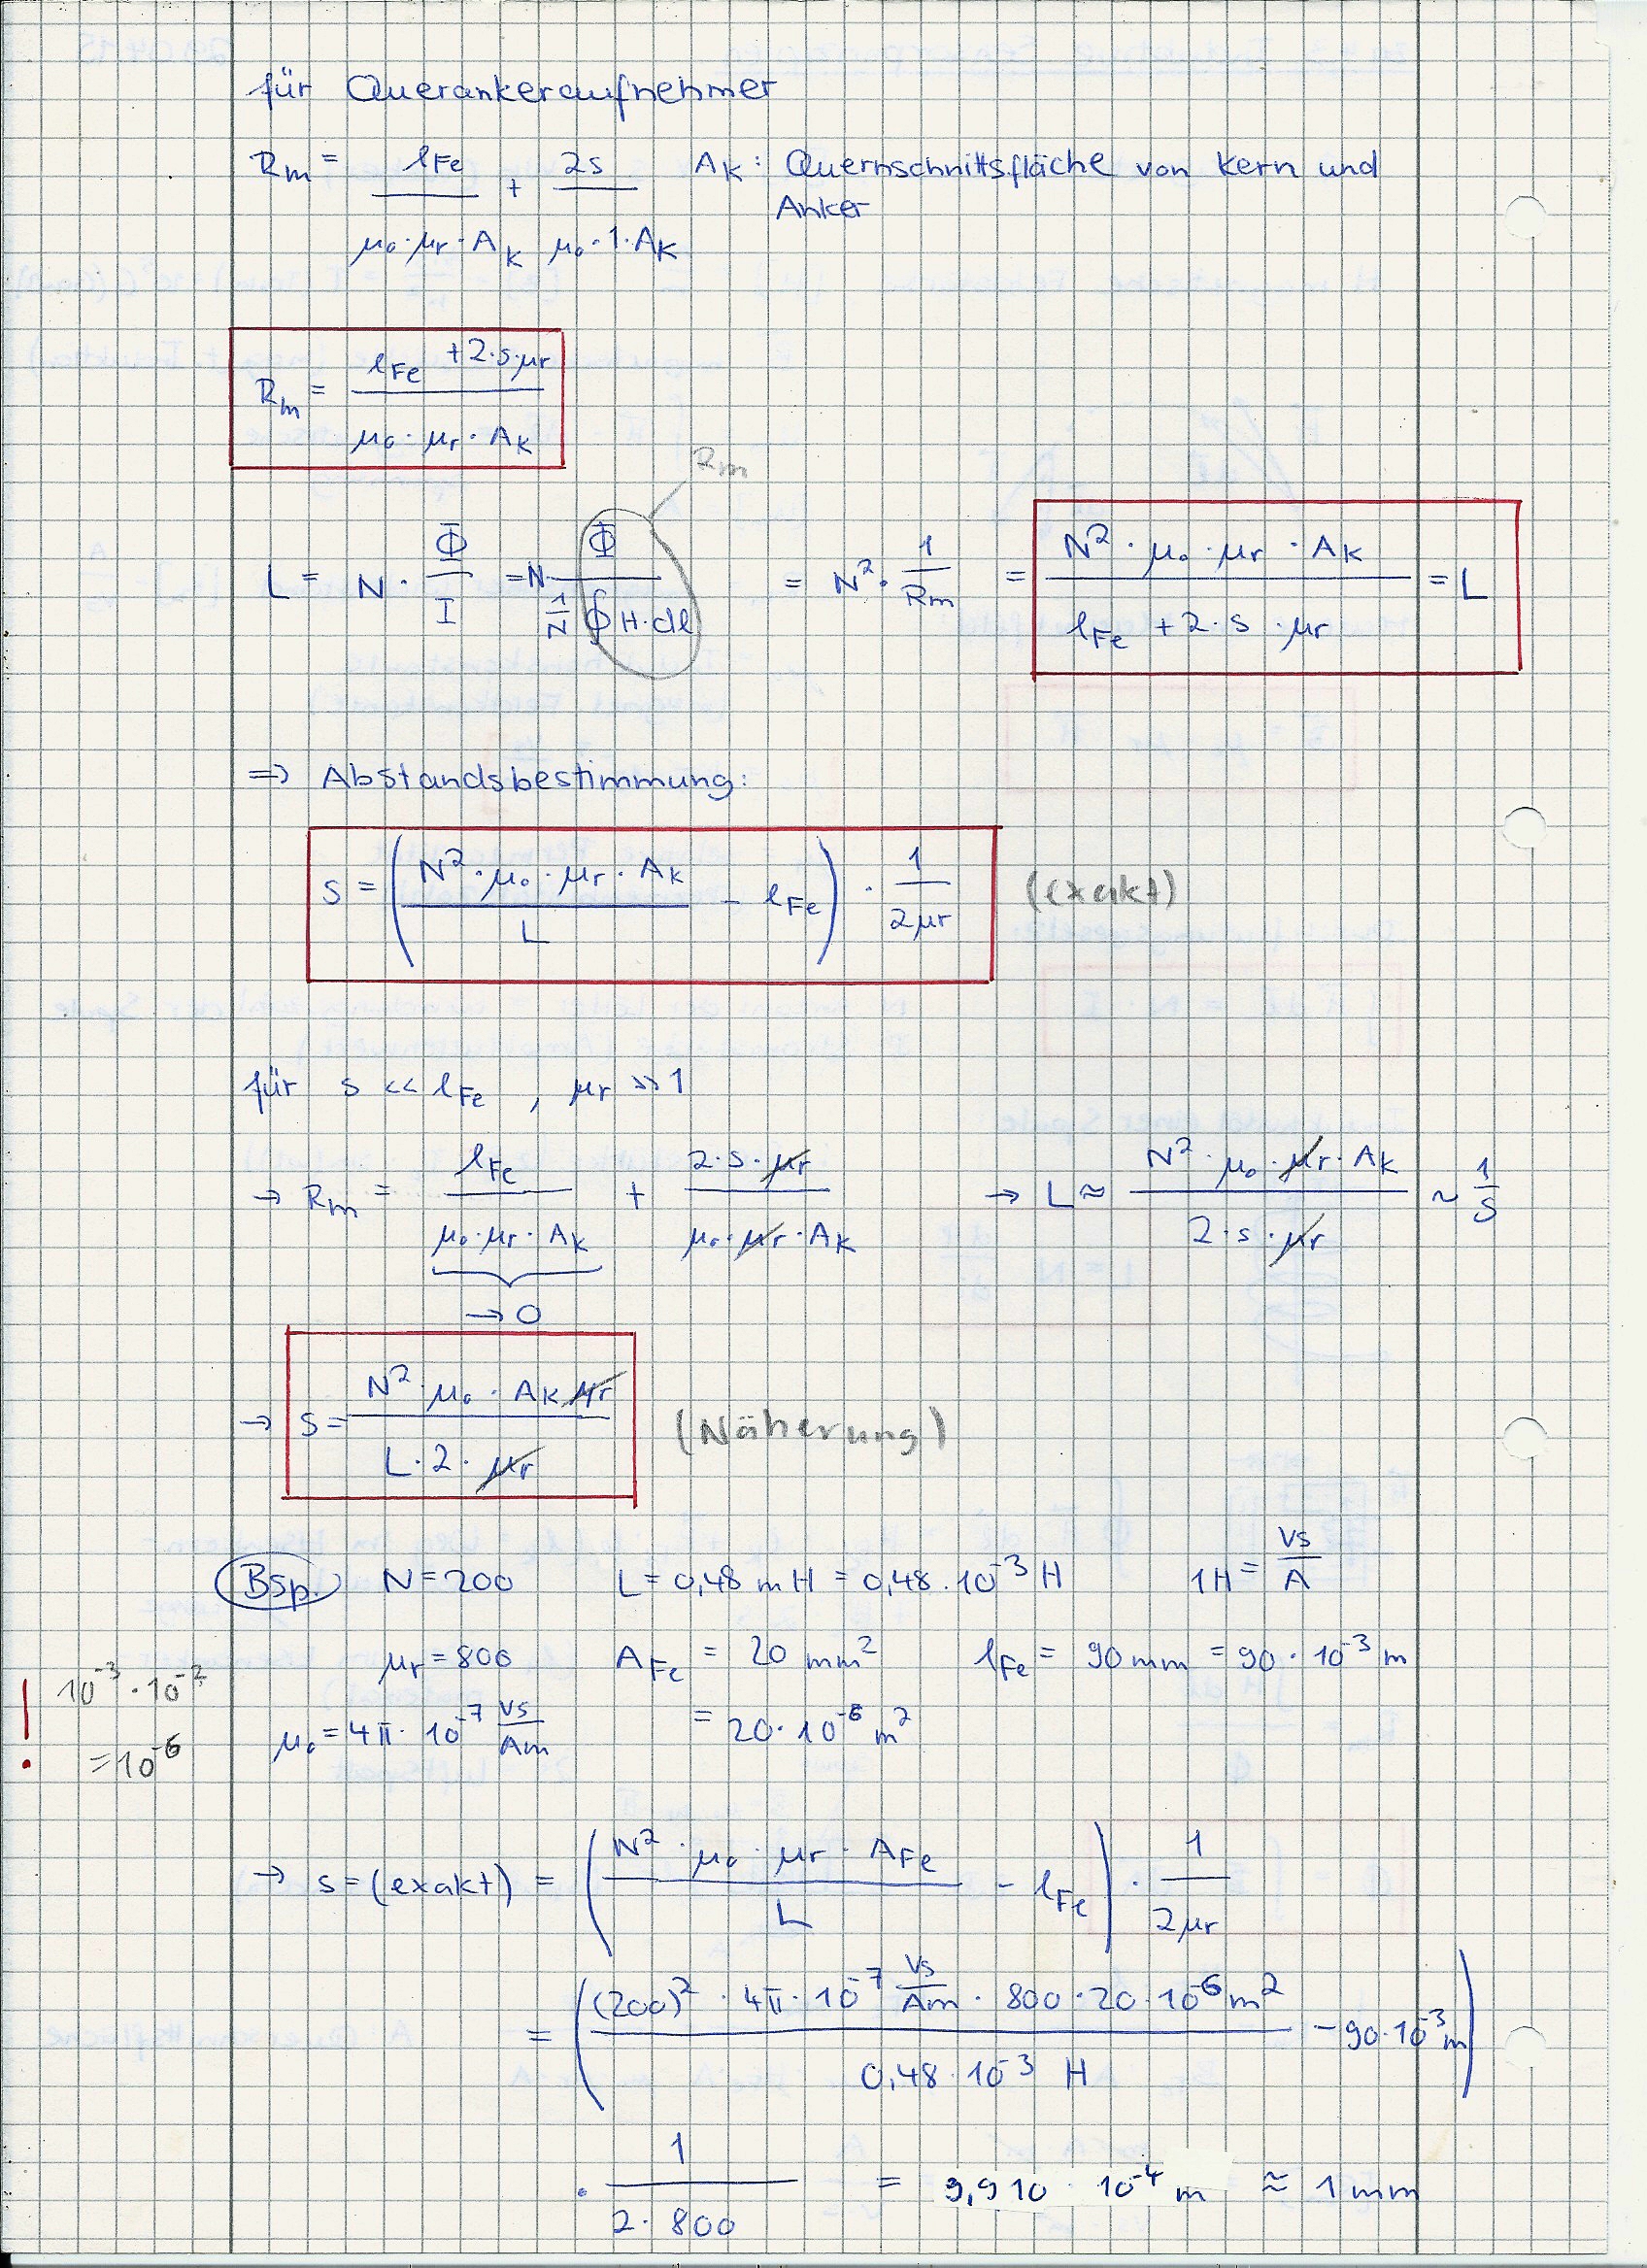 für Querankeraufnehmer
Rm = lFe / (μ0·μr·AK) + 2s / (μ0·1·AK)   AK: Quernschnittsfläche von Kern und
Anker
Rm = (lFe + 2·s·μr) / (μ0·μr·AK)
Rm
L = N · Φ/I = N · Φ / (1/N ∮ H·dl) = N² · 1/Rm = (N²·μ0·μr·AK) / (lFe + 2·s·μr) = L
=> Abstandsbestimmung:
s = ( (N²·μ0·μr·AK) / L − lFe ) · 1/(2μr) (exakt)
für s << lFe , μr >> 1
→ Rm = lFe / (μ0·μr·AK) + (2·s·μr) / (μ0·μr·AK) → L ≈ (N²·μ0·μr·AK) / (2·s·μr) ~ 1/s
→ 0
→ s = (N²·μ0·AK μr) / (L·2·μr) (Näherung)
Bsp. N = 200 L = 0,48 mH = 0,48·10⁻³ H 1H = Vs/A
μr = 800 AFe = 20 mm² lFe = 90mm = 90·10⁻³ m
! 10⁻³·10⁻²
μ0 = 4π·10⁻⁷ Vs/Am = 20·10⁻⁶ m²
= 10⁻⁶
→ s = (exakt) = ( (N²·μ0·μr·AFe) / L − lFe ) · 1/(2μr)
= ( ((200)²·4π·10⁻⁷ Vs/Am · 800·20·10⁻⁶ m²) / (0,48·10⁻³ H) − 90·10⁻³ m )
· 1/(2·800) = 9,910·10⁻⁴ m ≈ 1 mm